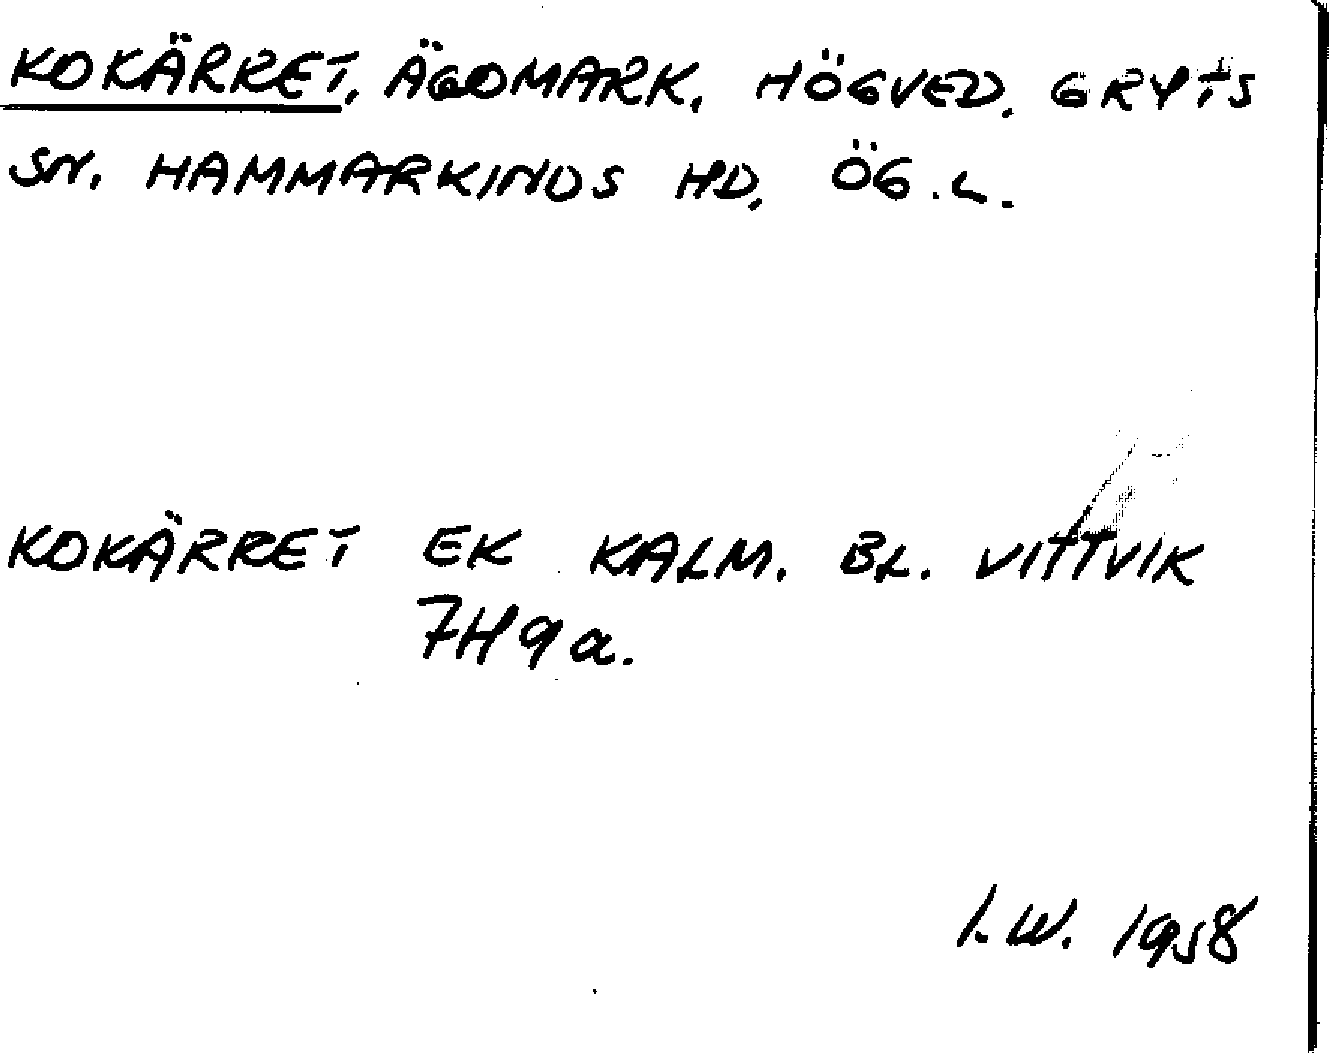 KOKÄRRET, ÄGOMARK, HÖGVED, GRYTS
SN. HAMMARKINDS HD, ÖG.L.
KOKÄRRET EK KALM. BL. VITTVIK
7H9a.
I.W. 1958